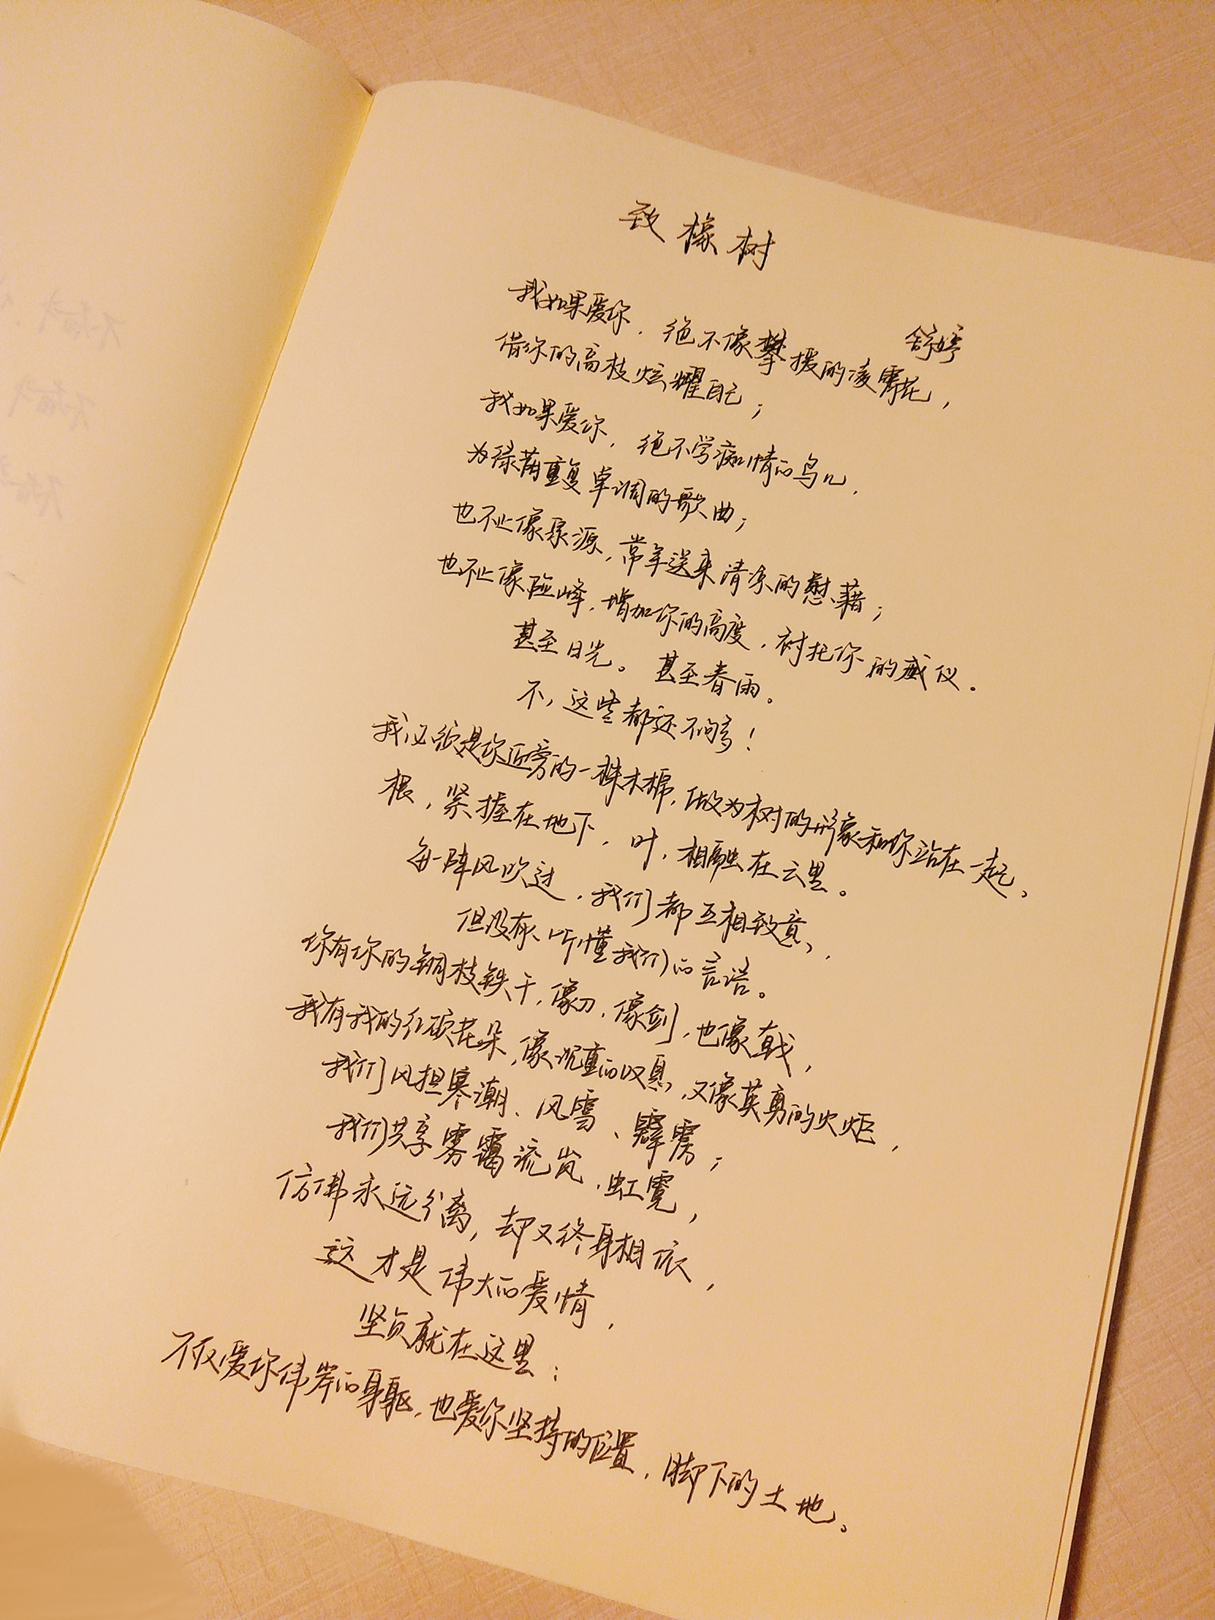 致橡树
舒婷
我如果爱你，绝不像攀援的凌霄花，
借你的高枝炫耀自己；
我如果爱你，绝不学痴情的鸟儿，
为绿荫重复单调的歌曲；
也不止像泉源，常年送来清凉的慰藉；
也不止像险峰，增加你的高度，衬托你的威仪。
甚至日光。甚至春雨。
不，这些都还不够！
我必须是你近旁的一株木棉，做为树的形象和你站在一起。
根，紧握在地下，叶，相融在云里。
每一阵风吹过，我们都互相致意，
但没有听懂我们的言语。
你有你的铜枝铁干，像刀，像剑，也像戟，
我有我的红硕花朵，像沉重的叹息，又像英勇的火炬，
我们风担寒潮、风雪、霹雳；
我们共享雾霭流岚、虹霓，
仿佛永远分离，却又终身相依，
这才是伟大的爱情，
坚贞就在这里：
不仅爱你伟岸的身躯，也爱你坚持的位置，脚下的土地。